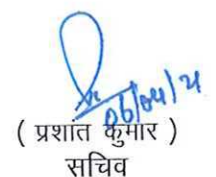 06/04/21
( प्रशांत कुमार )
सचिव